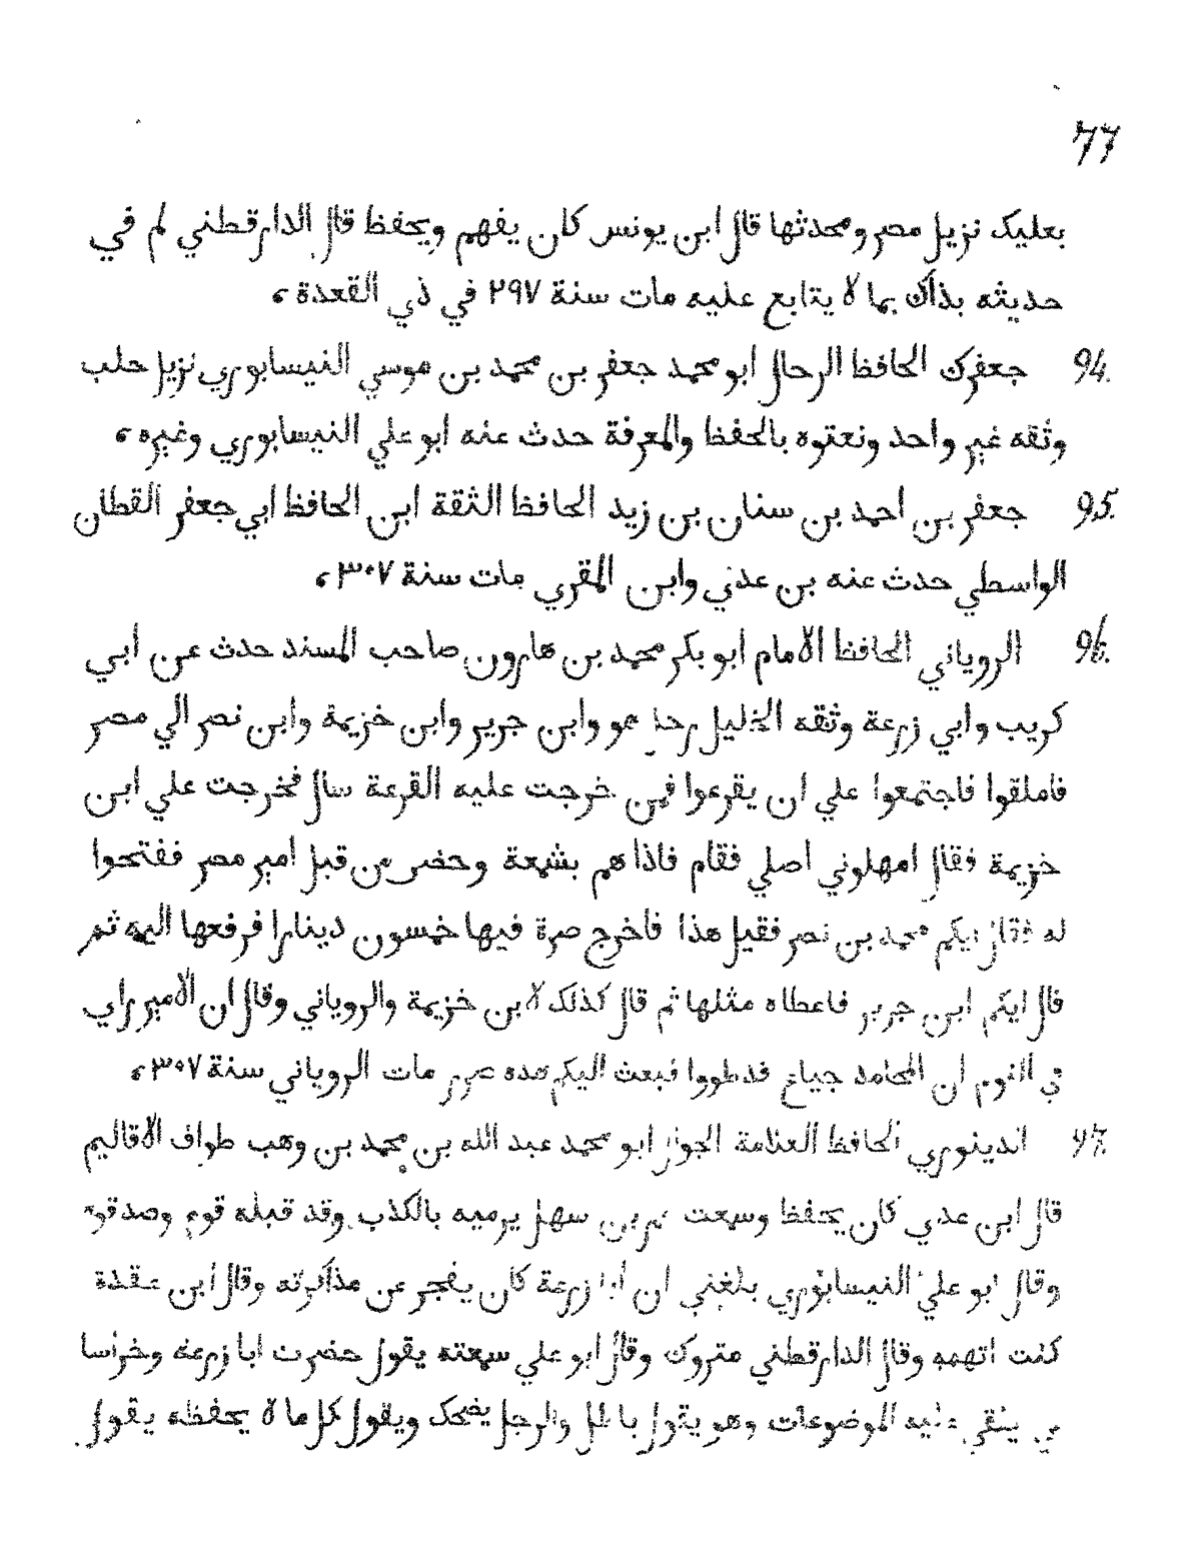 77
بعلبك نزيل مصر ومحدثها قال ابن يونس كان يفهم ويحفظ قال الدارقطني لم في
حديثه بذاك بما لا يتابع عليه مات سنة ٢٩٧ في ذي القعدة ،
94. جعفرك الحافظ الرحال ابو محمد جعفر بن محمد بن موسي النيسابوري نزيل حلب
وثقه غير واحد ونعتوه بالحفظ والمعرفة حدث عنه ابو علي النيسابوري وغيره ،
95. جعفر بن احمد بن سنان بن زيد الحافظ الثقة ابن الحافظ ابي جعفر القطان
الواسطي حدث عنه بن عدي وابن المقري مات سنة ٣٠٧ ،
96. الروياني الحافظ الامام ابو بكر محمد بن هارون صاحب المسند حدث عن ابي
كريب وابي زرعة وثقه الخليل رحل هو وابن جرير وابن خزيمة وابن نصر الي مصر
فاملقوا فاجتمعوا علي ان يقرعوا فمن خرجت عليه القرعة سال فخرجت علي ابن
خزيمة فقال امهلوني اصلي فقام فاذا هم بشمعة وحضى من قبل امير مصر ففتحوا
له فقال ايكم محمد بن نصر فقيل هذا فاخرج صرة فيها خمسون دينارا فرفعها اليه ثم
قال ايكم ابن جرير فاعطاه مثلها ثم قال كذلك لابن خزيمة والروياني وقال ان الامير راي
في النوم ان المحامد جياع قد طووا فبعث اليكم هذه مات الروياني سنة ٣٠٧ ،
97. الدينوري الحافظ العلامة الجوال ابو محمد عبد الله بن محمد بن وهب طواف الاقاليم
قال ابن عدي كان يحفظ وسمعت بن سهل يرميه بالكذب وقد قبله قوم وصدقوه
وقال ابو علي النيسابوري بلغني ان ابا زرعة كان يفجر عن مذاكرته وقال ابن عقدة
كنت اتهمه وقال الدارقطني متروك وقال ابو علي سمعته يقول حضرت ابا زرعة وخراسا
ني يلقي عليه الموضوعات وهو يقول باطل والرجل يضحك ويقول كل ما لا يحفظه يقول